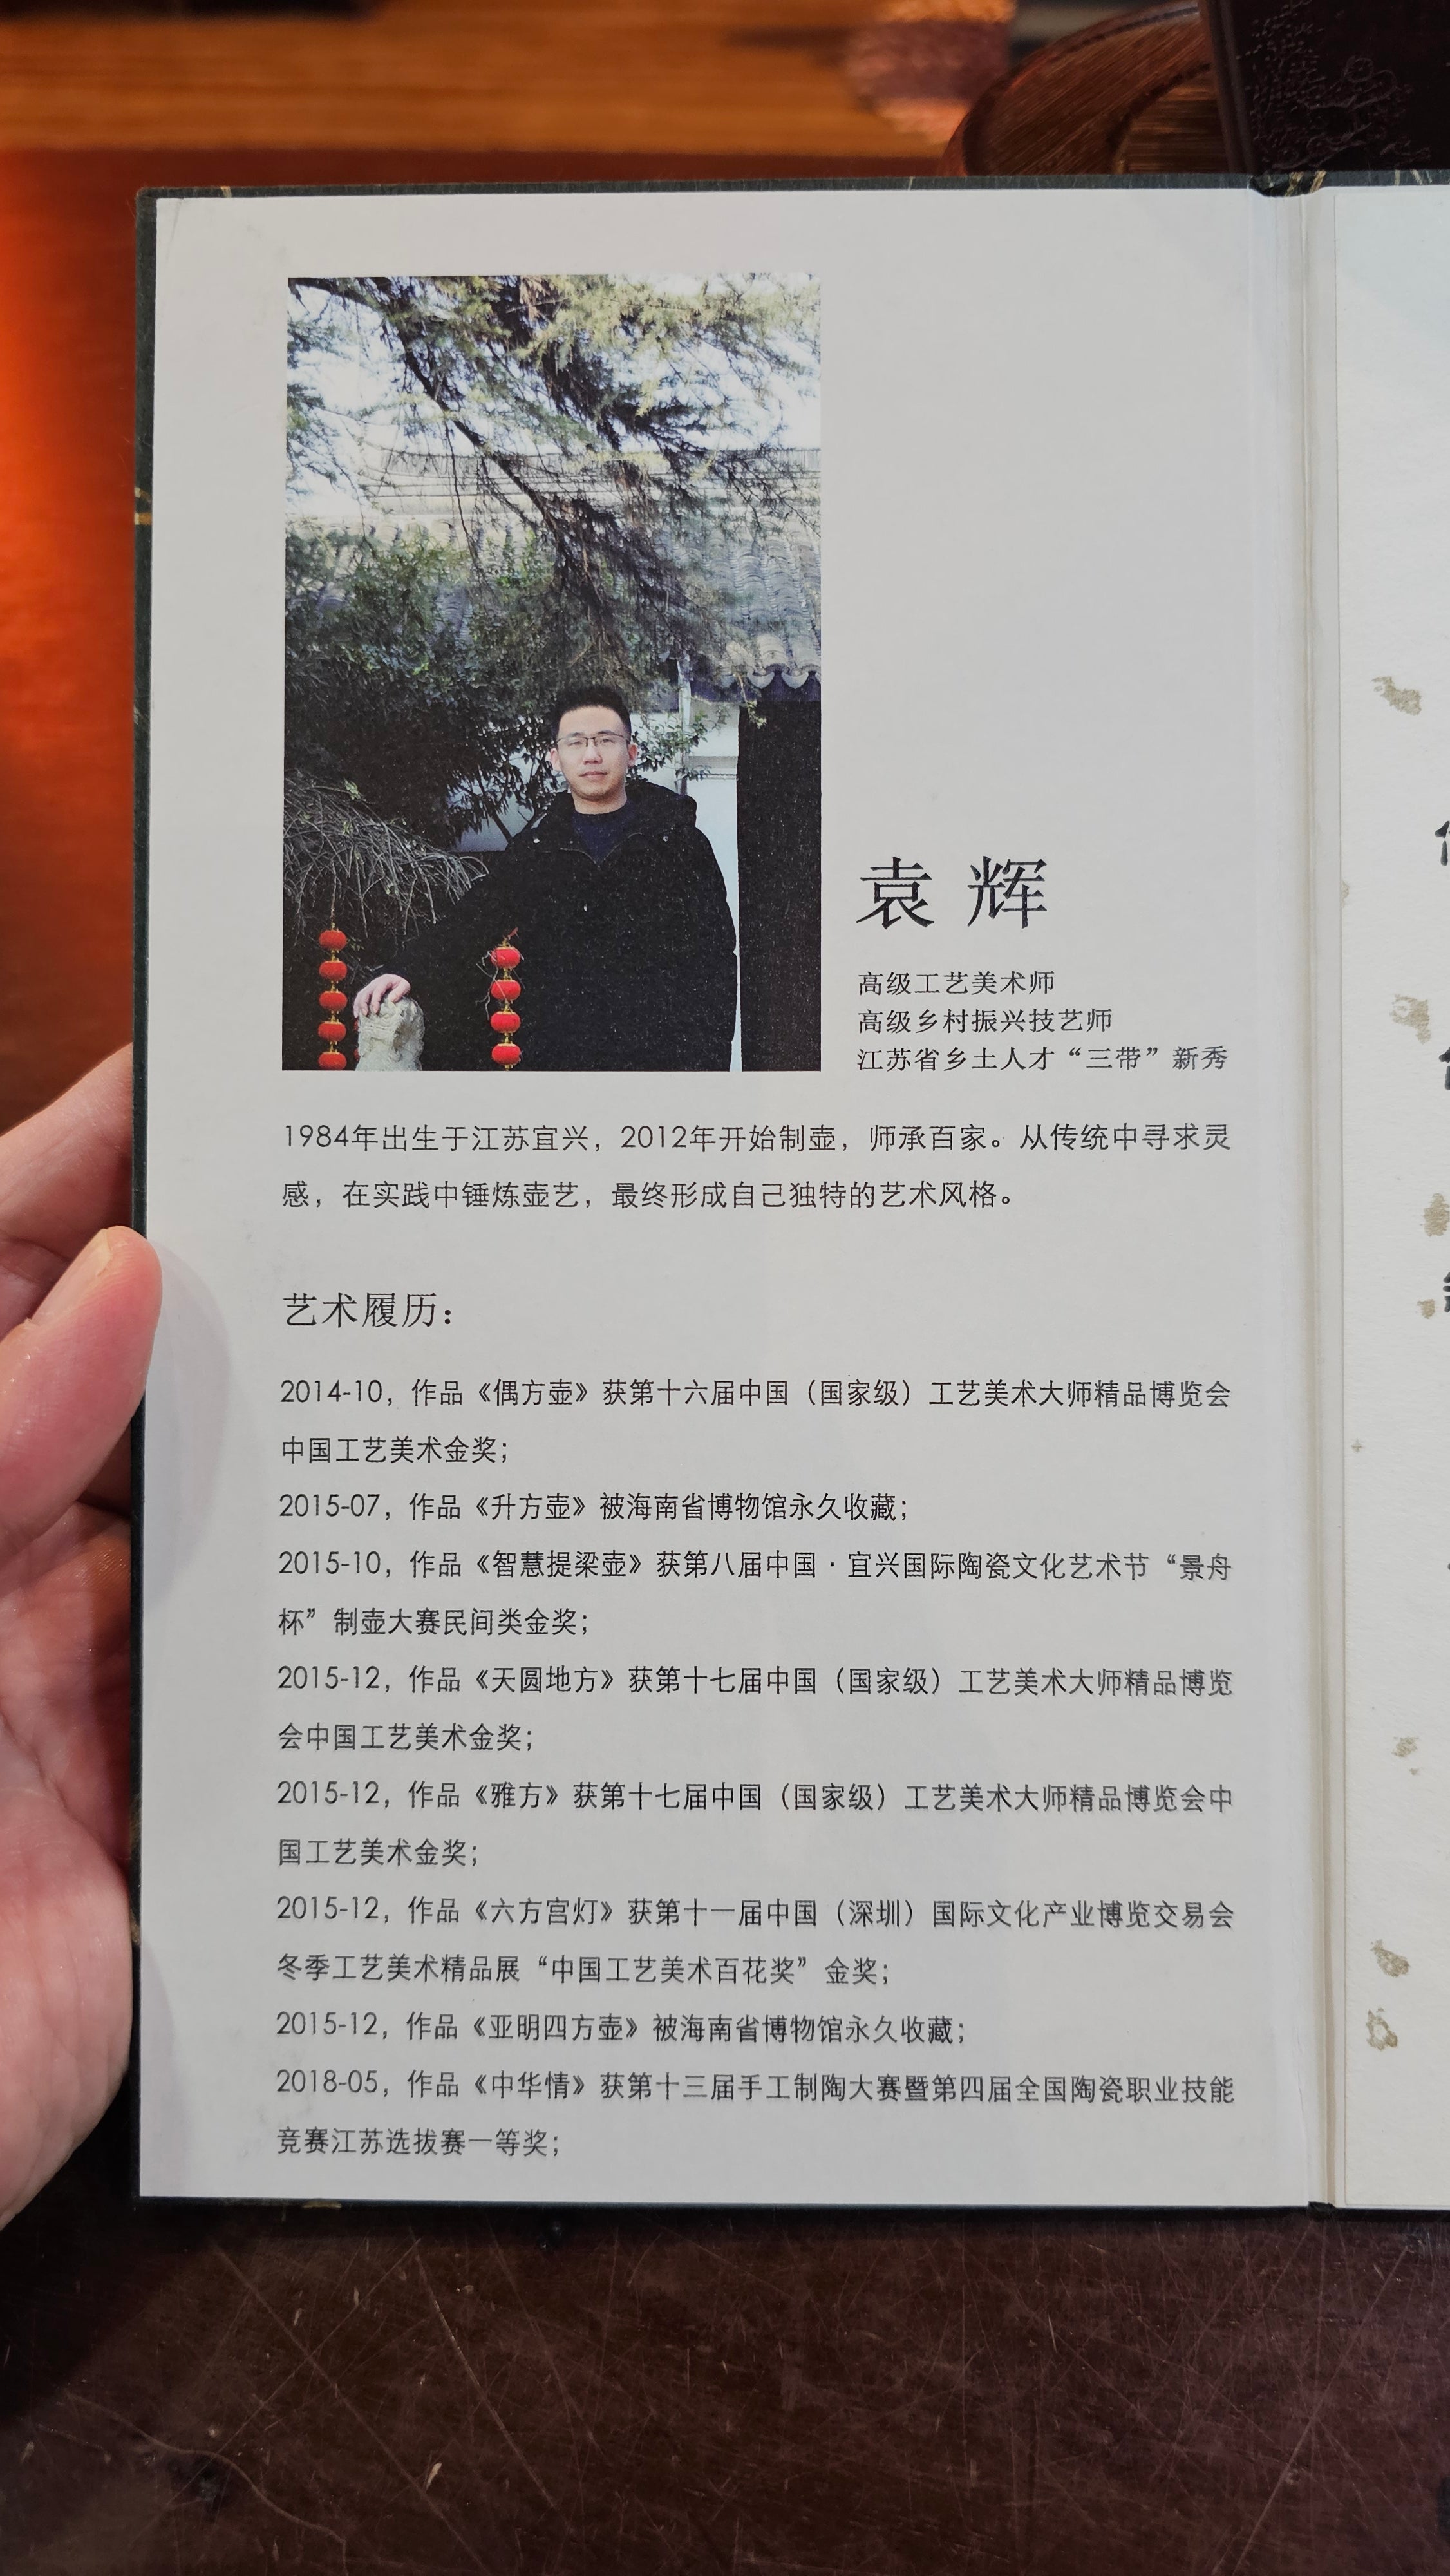 袁辉
高级工艺美术师
高级乡村振兴技艺师
江苏省乡土人才“三带”新秀
1984年出生于江苏宜兴，2012年开始制壶，师承百家。从传统中寻求灵
感，在实践中锤炼壶艺，最终形成自己独特的艺术风格。
艺术履历：
2014-10，作品《偶方壶》获第十六届中国（国家级）工艺美术大师精品博览会
中国工艺美术金奖；
2015-07，作品《升方壶》被海南省博物馆永久收藏；
2015-10，作品《智慧提梁壶》获第八届中国·宜兴国际陶瓷文化艺术节“景舟
杯”制壶大赛民间类金奖；
2015-12，作品《天圆地方》获第十七届中国（国家级）工艺美术大师精品博览
会中国工艺美术金奖；
2015-12，作品《雅方》获第十七届中国（国家级）工艺美术大师精品博览会中
国工艺美术金奖；
2015-12，作品《六方宫灯》获第十一届中国（深圳）国际文化产业博览交易会
冬季工艺美术精品展“中国工艺美术百花奖”金奖；
2015-12，作品《亚明四方壶》被海南省博物馆永久收藏；
2018-05，作品《中华情》获第十三届手工制陶大赛暨第四届全国陶瓷职业技能
竞赛江苏选拔赛一等奖；